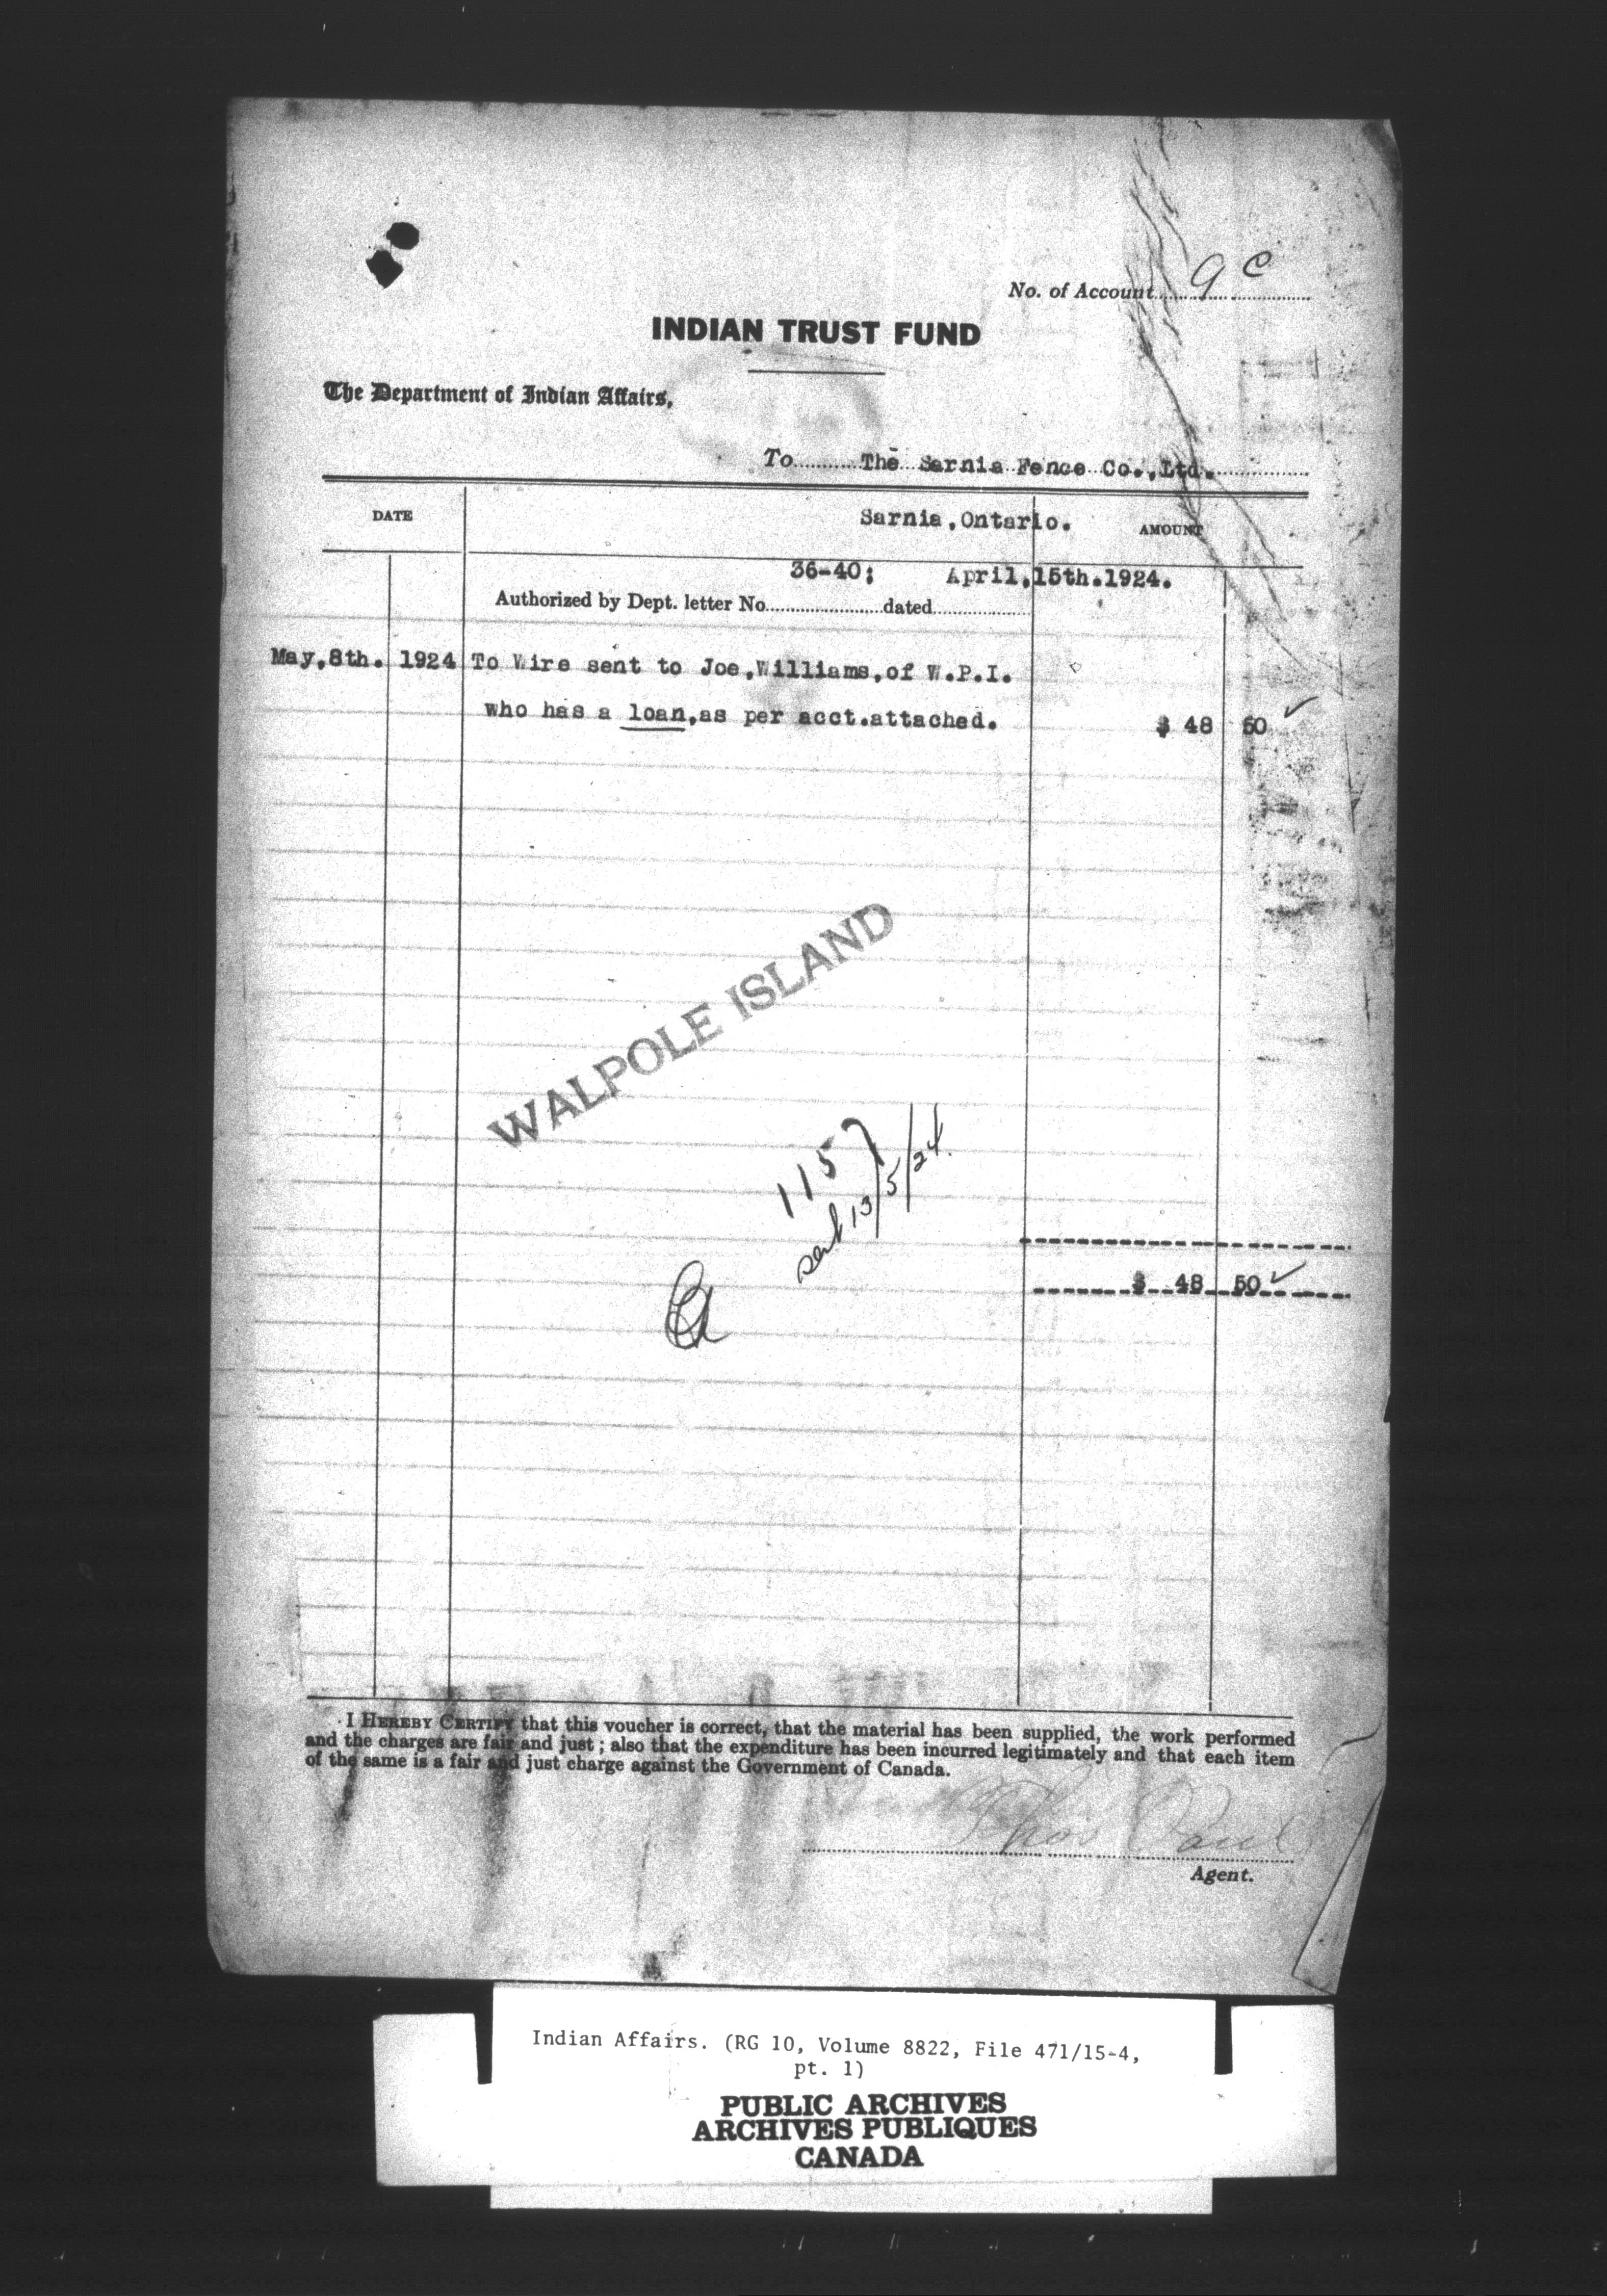 No. of Account 9 c
INDIAN TRUST FUND
The Department of Indian Affairs,
To The Sarnia Fence Co.,Ltd.
DATE
Sarnia,Ontario.
AMOUNT
36-40; April,15th.1924.
Authorized by Dept. letter No. dated
May,8th. 1924 To Wire sent to Joe,Williams,of W.P.I.
who has a loan,as per acct.attached. $ 48 50 ✓
WALPOLE ISLAND
1157
sent 13/5/24.
$ 48 50 ✓
I HEREBY CERTIFY that this voucher is correct, that the material has been supplied, the work performed
and the charges are fair and just; also that the expenditure has been incurred legitimately and that each item
of the same is a fair and just charge against the Government of Canada.
Thos Paul
Agent.
Indian Affairs. (RG 10, Volume 8822, File 471/15-4,
pt. 1)
PUBLIC ARCHIVES
ARCHIVES PUBLIQUES
CANADA